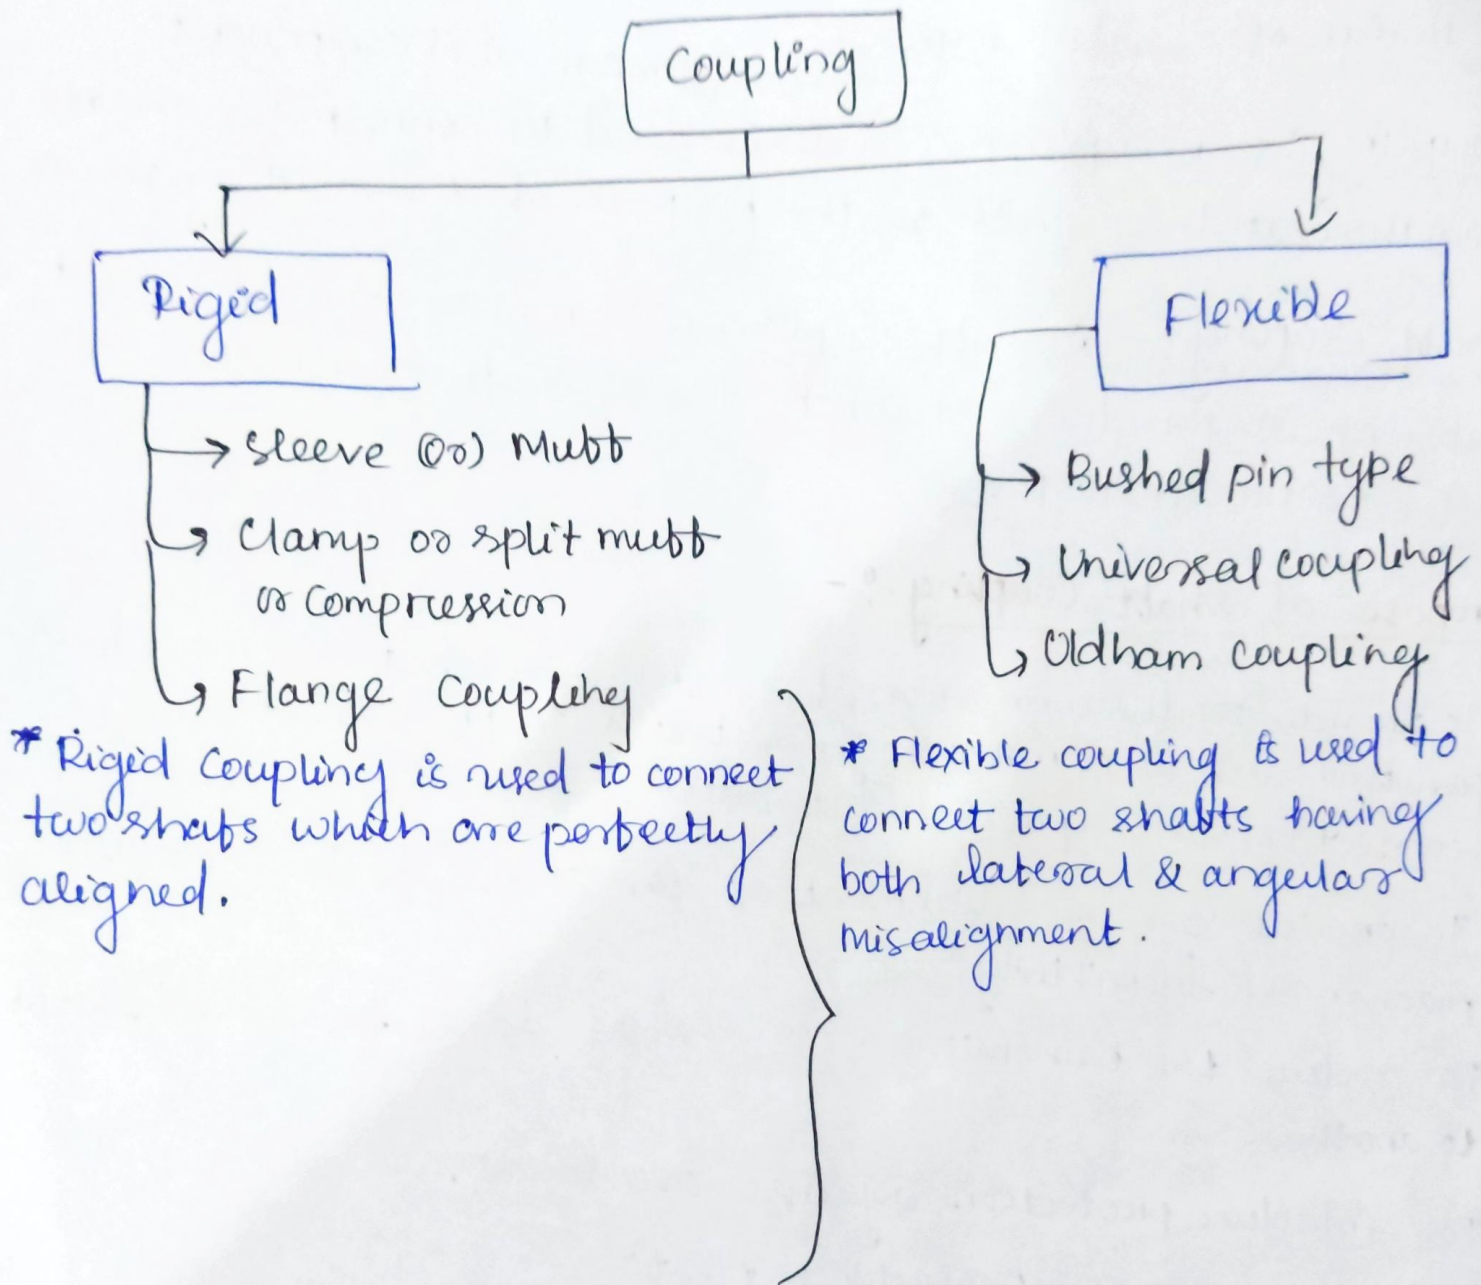 Coupling
Rigid
→ Sleeve (or) Muff
→ Clamp or split muff
or Compression
→ Flange Coupling
* Rigid Coupling is used to connect
two shafts which are perfectly
aligned.
Flexible
→ Bushed pin type
→ Universal coupling
→ Oldham coupling
* Flexible coupling is used to
connect two shafts having
both lateral & angular
misalignment.